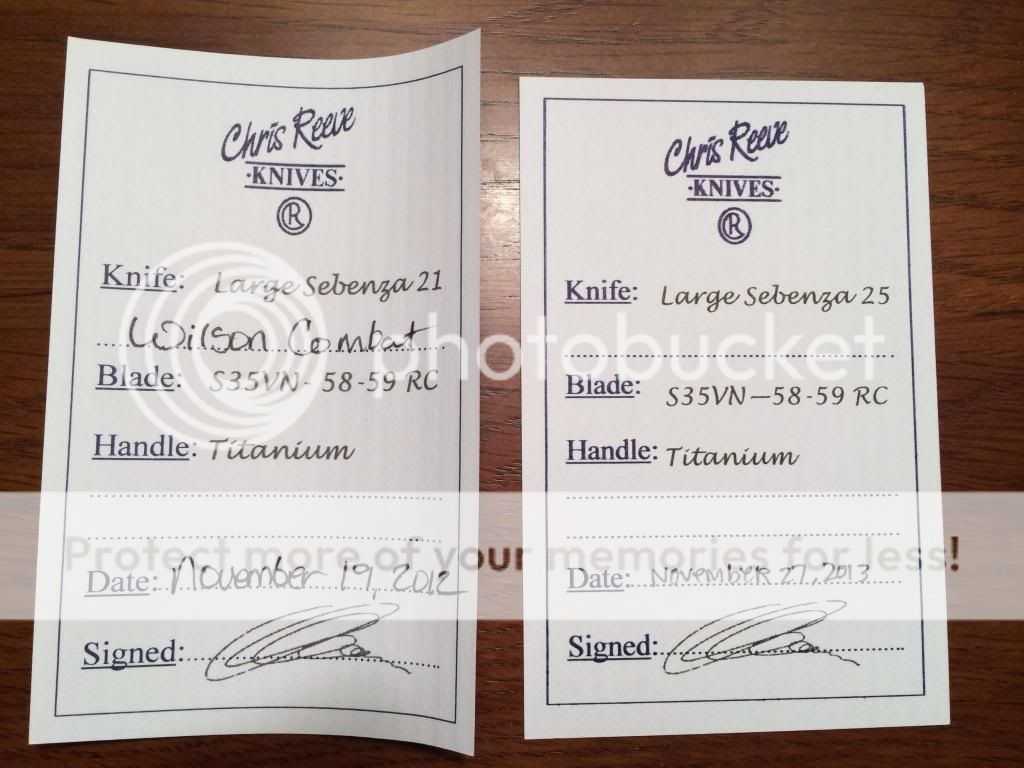 Chris Reeve
·KNIVES·
®
Knife: Large Sebenza 21
Wilson Combat
Blade: S35VN- 58-59 RC
Handle: Titanium
Date: November 19, 2012
Signed:
Chris Reeve
·KNIVES·
®
Knife: Large Sebenza 25
Blade: S35VN—58-59 RC
Handle: Titanium
Date: November 27, 2013
Signed:
photobucket
Protect more of your memories for less!